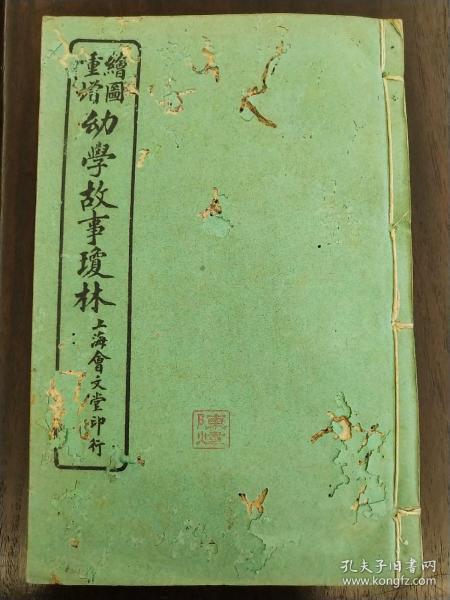 繪圖
重增
幼學故事瓊林
上海會文堂印行
孔夫子旧书网
www.kongfz.com